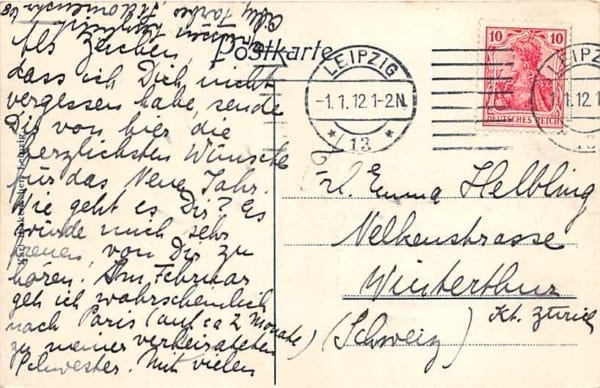 Postkarte
LEIPZIG
-1.1.12.1-2N.
* 13 *
10 10
DEUTSCHES REICH
LEIPZ
1.12.1
Als Zeichen,
dass ich Dich nicht
vergessen habe, sende
Dir von hier die
herzlichsten Wünsche
für das Neue Jahr.
Wie geht es Dir? Es
würde mich sehr
freuen, von Dir zu
hören! Im Februar
geh ich wahrscheinlich
nach Paris (auf ca 2 Monate)
zu meiner verheirateten
Schwester. Mit vielen
Frl. Emma Helbling
Nelkenstrasse
Winterthur
Kt. Zürich
(Schweiz)